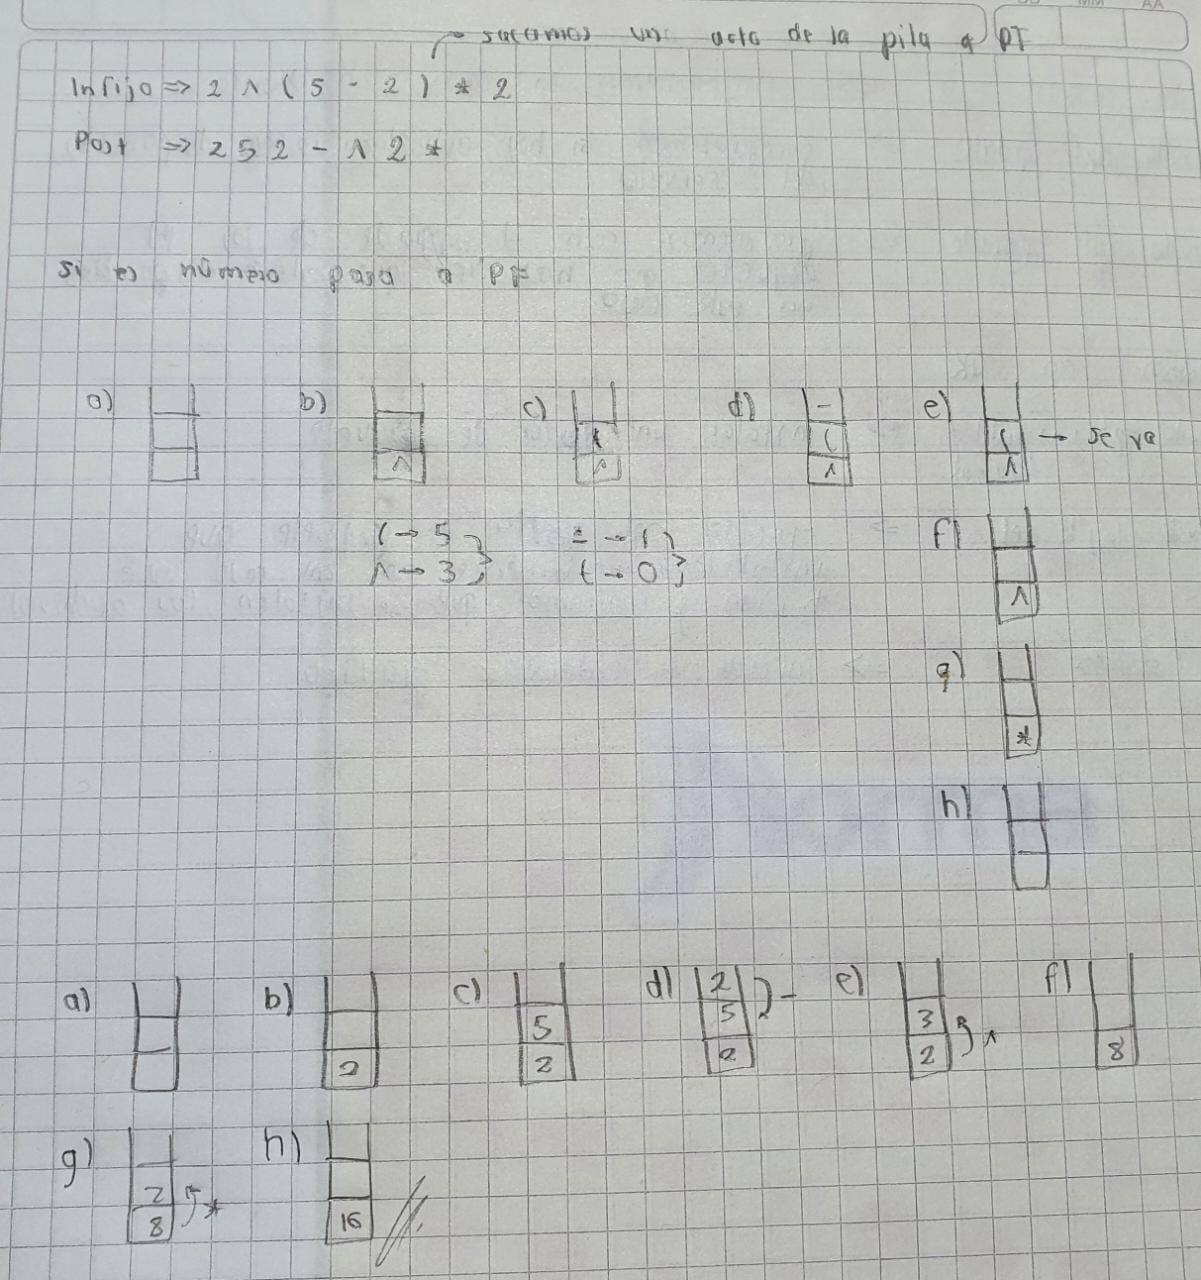 sacamos un acto de la pila a PT
Infijo => 2 ^ ( 5 - 2 ) * 2
Post => 2 5 2 - ^ 2 *
si es número pasa a PF
a) b) ^ c) ( ^ d) - ( ^ e) ( ^ → se va
( → 5 - → 1 f) ^
^ → 3 ( → 0
g) *
h)
a) b) 2 c) 5 2 d) 2 5 2 - e) 3 2 ^ f) 8
g) 2 8 * h) 16